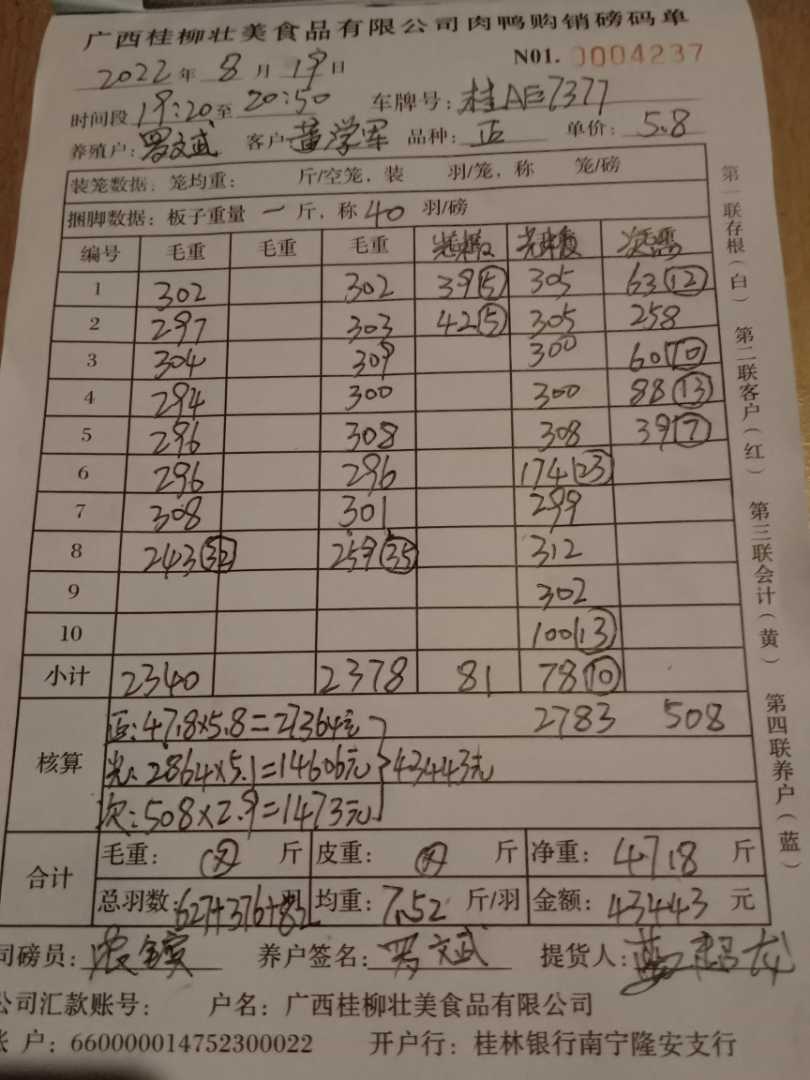 广西桂柳壮美食品有限公司肉鸭购销磅码单
2022年8月19日 N01. 0004237
时间段19:20至20:50 车牌号:桂AE7377
养殖户:罗文武 客户 黄学军 品种:正 单价:5.8
装笼数据:笼均重: 斤/空笼,装 羽/笼,称 笼/磅
捆脚数据:板子重量 一 斤,称40 羽/磅
编号 毛重 毛重 毛重
1 302 302 39⑤ 305 63⑫
2 297 303 42⑤ 305 258
3 304 309 300 60⑩
4 294 300 300 88⑬
5 296 308 308 39⑦
6 296 296 174㉓
7 308 301 299
8 243㉜ 259㉟ 312
9 302
10 100⑬
小计 2340 2378 81 78⑩
核算
正:47.8×5.8=27364元 2783 508
光:2864×5.1=14606元 43443元
次:508×2.9=1473元
合计
毛重: 斤 皮重: 斤 净重:4718 斤
总羽数:627+376+83 均重:7.52 斤/羽 金额:43443 元
司磅员: 养户签名:罗文武 提货人:
公司汇款账号: 户名:广西桂柳壮美食品有限公司
账 户:660000014752300022 开户行:桂林银行南宁隆安支行
第一联存根(白) 第二联客户(红) 第三联会计(黄) 第四联养户(蓝)